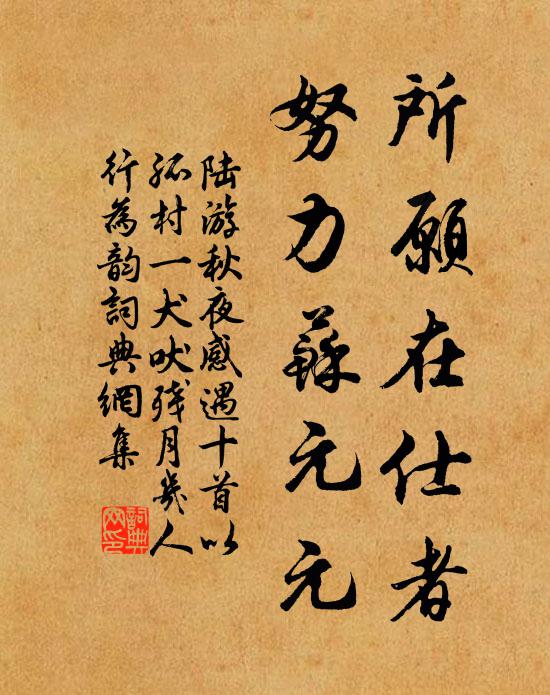 所願在仕者
努力蘇元元
陆游秋夜感遇十首以
孤村一犬吠残月幾人
行為韵詞典網集
詞典
网